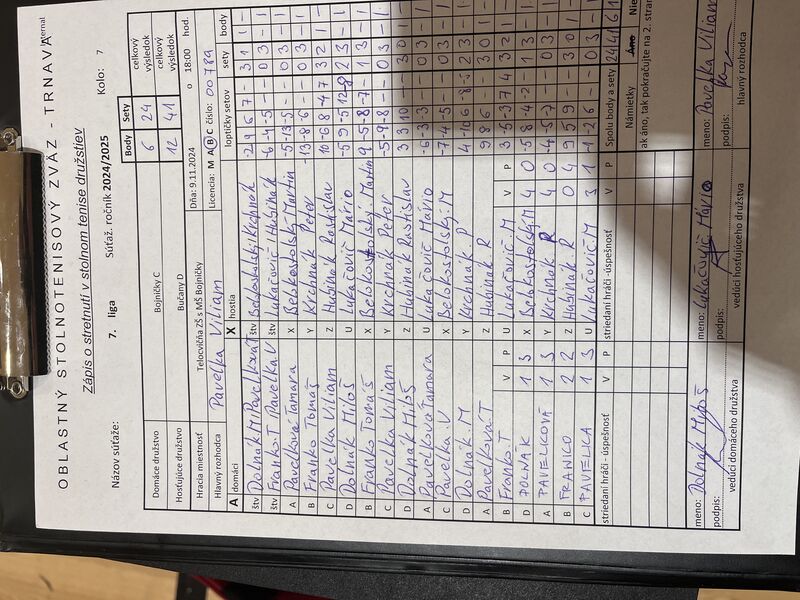 OBLASTNÝ STOLNOTENISOVÝ ZVÄZ - TRNAVA
Zápis o stretnutí v stolnom tenise družstiev
Názov súťaže: 7. liga Súťaž. ročník 2024/2025 Kolo: 7
Body Sety celkový výsledok
Domáce družstvo Bojničky C 6 24 celkový výsledok
Hosťujúce družstvo Bučany D 12 41
Hracia miestnosť Telocvičňa ZŠ s MŠ Bojničky Dňa: 9.11.2024 o 18:00 hod.
Hlavný rozhodca Pavelka Viliam Licencia: M A B C číslo: 00789
A domáci X hostia loptičky setov sety body
štv Dolnák M štv
štv Franko T Pavelka V štv Lukačovič Hubinák -6-4-5 0 3 - 1
A Pavelková Tamara X Belokostolský Martin -5-13-5 0 3 - 1
B Franko Tomáš Y Krchnák Peter -13-8-6 0 3 - 1
C Pavelka Viliam Z Hubinák Rastislav 3 2 1 -
D Dolnák Miloš U Lukačovič Mário 2 3 - 1
B Franko Tomáš X Belokostolský Martin 1 3 - 1
C Pavelka Viliam Y Krchnák Peter -5-9-8 0 3 - 1
D Dolnák Miloš Z Hubinák Rastislav 3 3 10 3 0 1 -
A Pavelková Tamara U Lukačovič Mário -6-3-3 0 3 - 1
C Pavelka V X Belokostolský M -7-4-5 0 3 - 1
D Dolnák M Y Krchnák P 2 3 - 1
A Pavelková T Z Hubinák R 9 8 6 3 0 1 -
B Franko T V P U Lukačovič M V P 3 2 1 -
D DOLNÁK 1 3 X Belokostolský M 4 0 -5 8 -4 -2 1 3 - 1
A PAVELKOVÁ 1 3 Y Krchnák P 4 0 -4-5-7 0 3 - 1
B FRANKO 2 2 Z Hubinák R 0 4 9 5 9 3 0 1 -
C PAVELKA 1 3 U Lukačovič M 3 1 -1-2-6 0 3 - 1
striedaní hráči -úspešnosť striedaní hráči -úspešnosť Spolu body a sety 24 41 6 1
Námietky Áno Nie
ak áno, tak pokračujte na 2. stran
meno: Dolnák Miloš meno: Lukačovič Mário meno: Pavelka Viliam
podpis: podpis: podpis:
vedúci domáceho družstva vedúci hosťujúceho družstva hlavný rozhodca